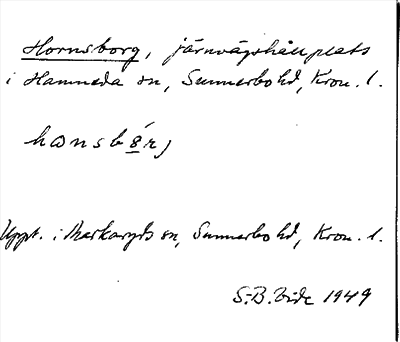 Hornsborg, järnvägshållplats
i Hamneda sn, Sunnerbo hd, Kron. l.
Uppt. i Markaryds sn, Sunnerbo hd, Kron. l.
S.B. Vide 1949